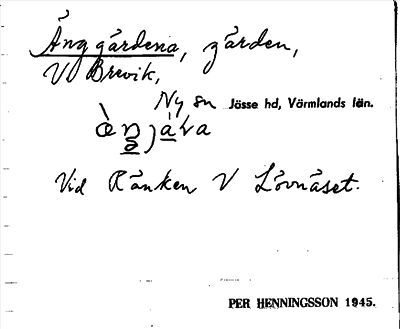 Änggärdena, gärden,
V Brevik,
Ny sn Jösse hd, Värmlands län.
Vid Ränken V Lövnäset.
PER HENNINGSSON 1945.